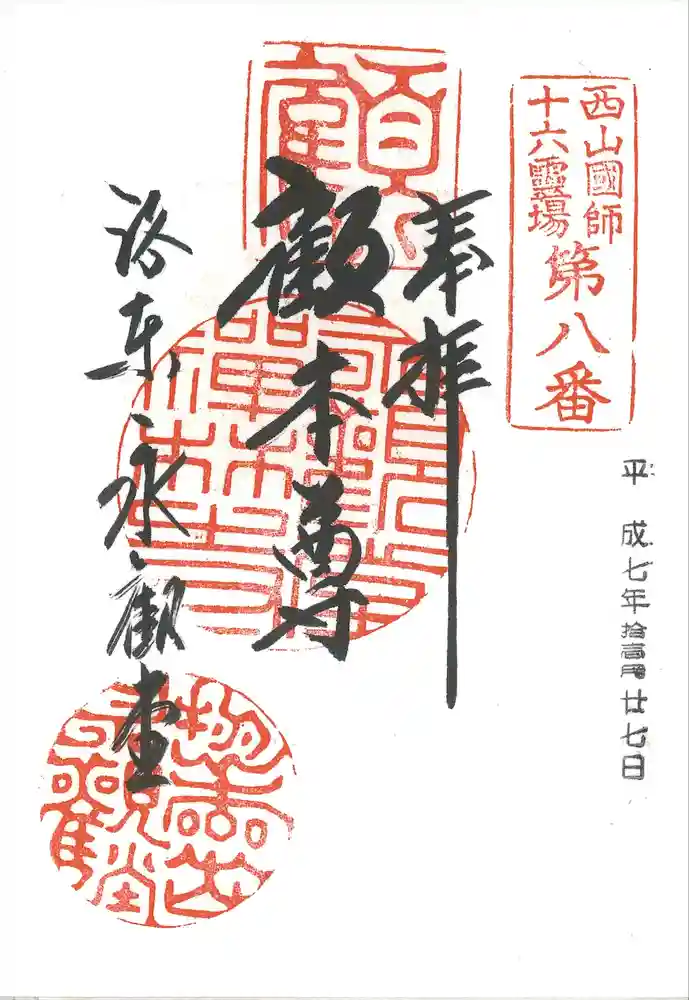 西山國師
十六靈場
第八番
平成七年拾壹月廿七日
奉拝
顧本尊
洛東永観堂
顧